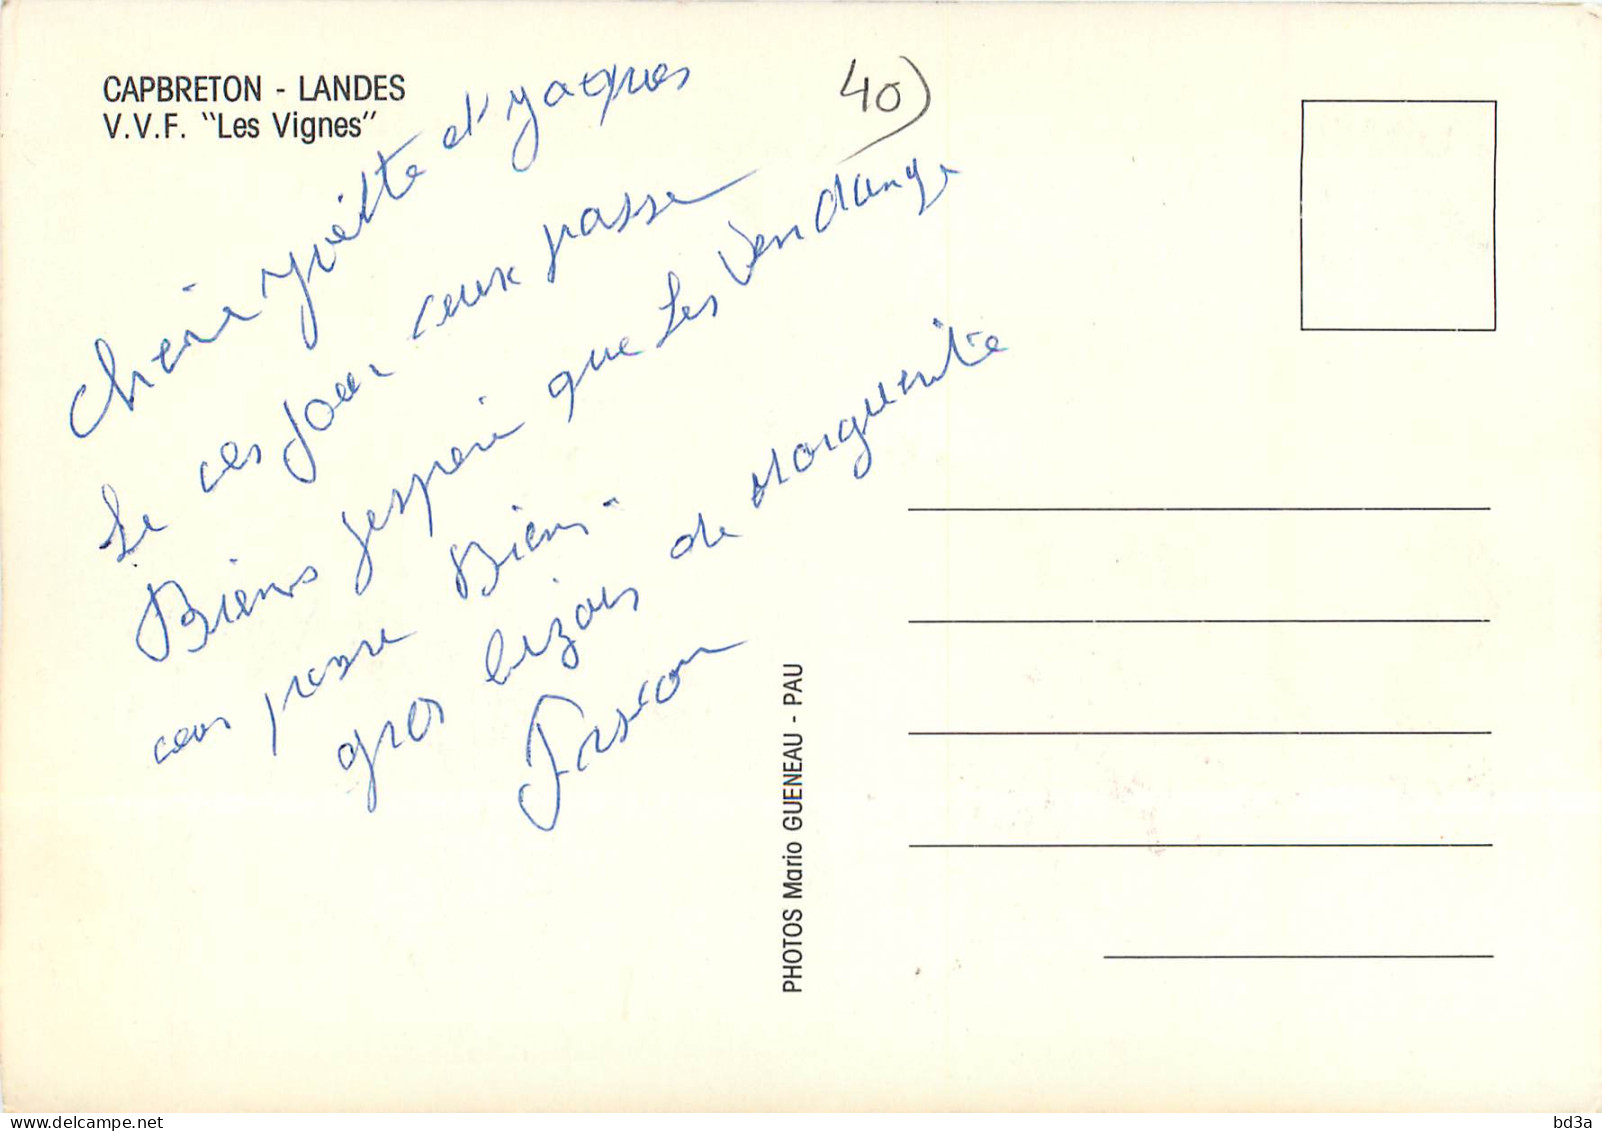 CAPBRETON - LANDES
V.V.F. "Les Vignes"
40)
Cherie yvette et yacques
Le ces jour ceux passe
Biens jesperè que Les Vendange
ceus passe Biens -
gros bizous de Marguerite
PHOTOS Mario GUENEAU - PAU
delcampe.net
bd3a